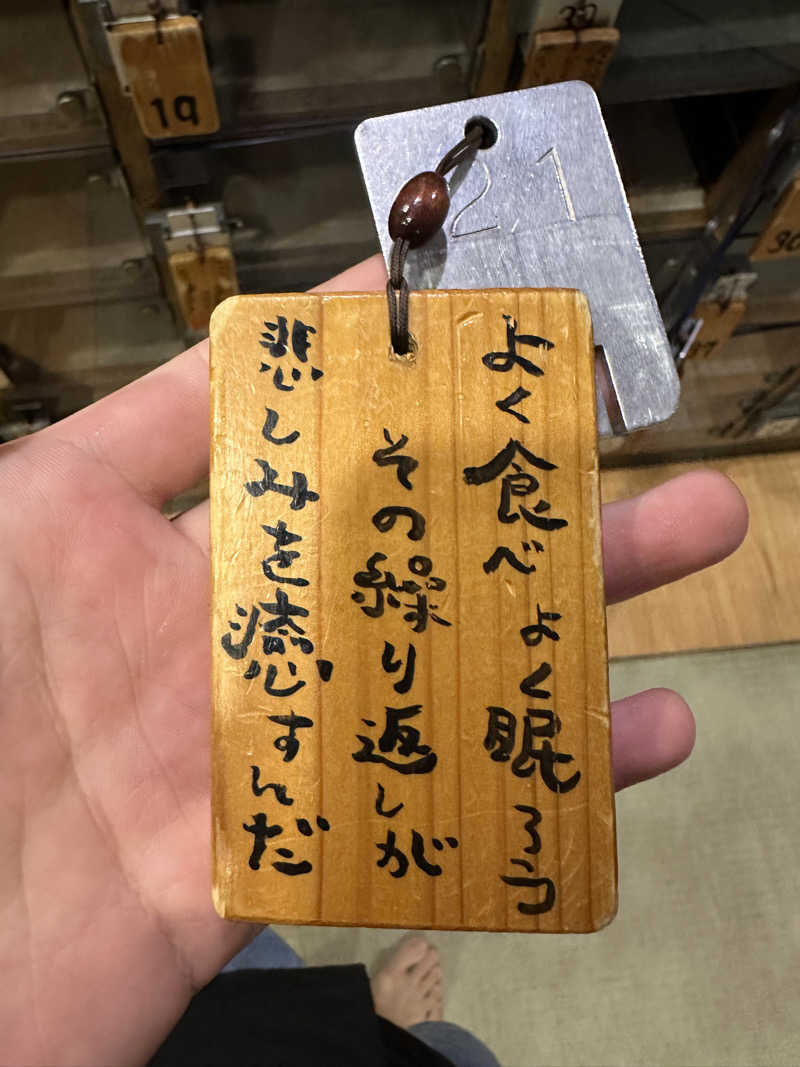 よく食べよく眠ろう
その繰り返しが
悲しみを癒すんだ
21
19
30